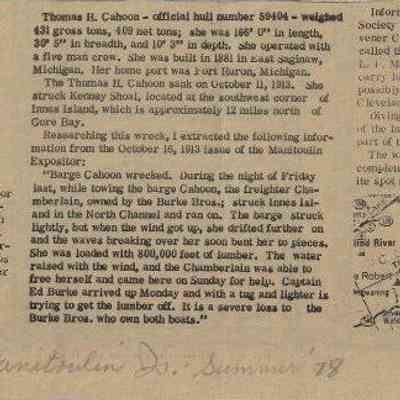 Thomas H. Cahoon - official hull number 59404 - weighed
431 gross tons, 409 net tons; she was 166' 0" in length,
30' 5" in breadth, and 10' 3" in depth. She operated with
a five man crew. She was built in 1881 in East Saginaw,
Michigan. Her home port was Port Huron, Michigan.
The Thomas H. Cahoon sank on October 11, 1913. She
struck Kenney Shoal, located at the southwest corner of
Innes Island, which is approximately 12 miles north of
Gore Bay.
Researching this wreck, I extracted the following infor-
mation from the October 16, 1913 issue of the Manitoulin
Expositor:
"Barge Cahoon wrecked. During the night of Friday
last, while towing the barge Cahoon, the freighter Cha-
mberlain, owned by the Burke Bros.; struck Innes Isl-
and in the North Channel and ran on. The barge struck
lightly, but when the wind got up, she drifted further on
and the waves breaking over her soon beat her to pieces.
She was loaded with 800,000 feet of lumber. The water
raised with the wind, and the Chamberlain was able to
free herself and came here on Sunday for help. Captain
Ed Burke arrived up Monday and with a tug and lighter is
trying to get the lumber off. It is a severe loss to the
Burke Bros. who own both boats."
Infor
Society
vener C
called th
carry h
possibly
Clevelan
Diving
of the In
part of t
The w
complet
its spot
River
Robert
or
er
Manitoulin Is. Summer '78